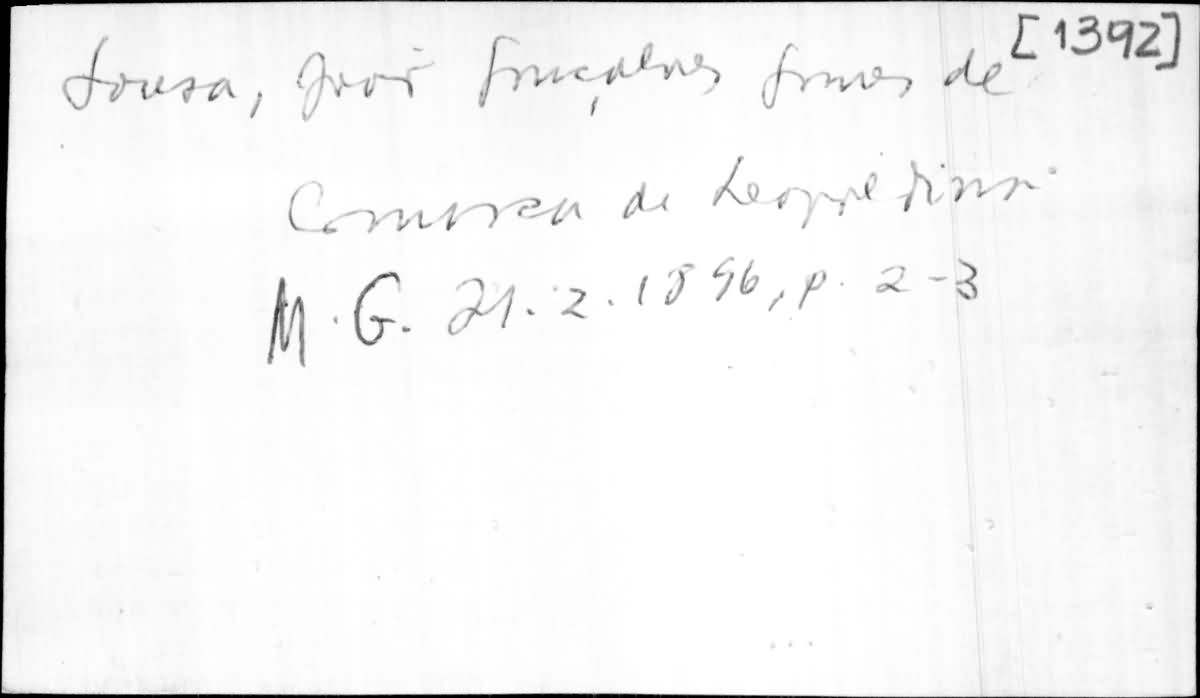 [1392]
Sousa, João Gonçalves Gomes de
Comarca de Leopoldina.
M. G. 21.2.1896, p. 2-3